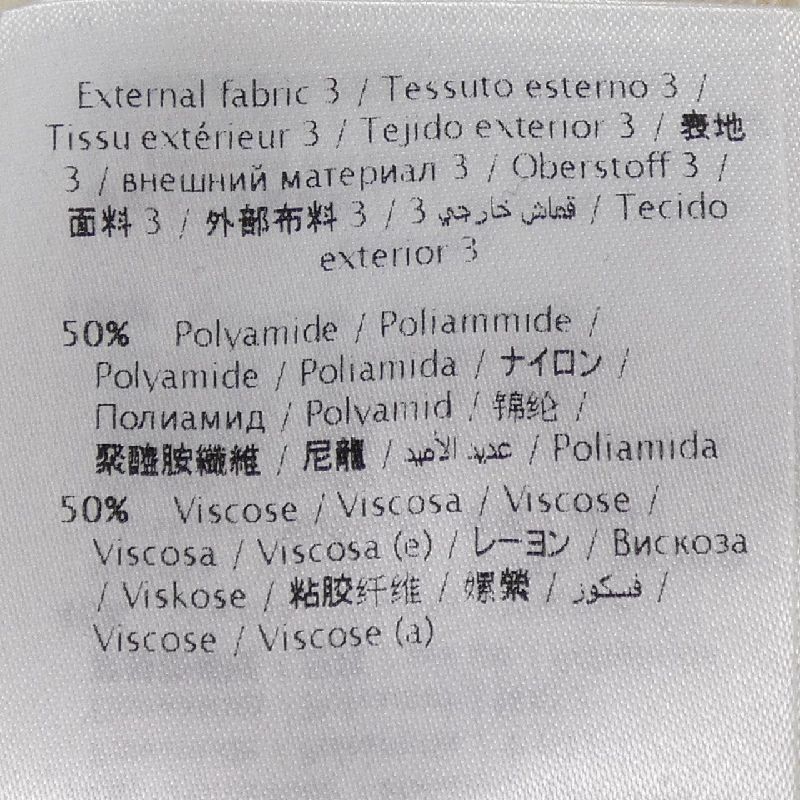 External fabric 3 / Tessuto esterno 3 /
Tissu extérieur 3 / Tejido exterior 3 / 表地
3 / внешний материал 3 / Oberstoff 3 /
面料 3 / 外部布料 3 / 3 قماش خارجي / Tecido
exterior 3
50% Polyamide / Poliammide /
Polyamide / Poliamida / ナイロン /
Полиамид / Polyamid / 锦纶 /
聚醯胺纖維 / 尼龍 / عديد الأميد / Poliamida
50% Viscose / Viscosa / Viscose /
Viscosa / Viscosa (e) / レーヨン / Вискоза
/ Viskose / 粘胶纤维 / 嫘縈 / فسكوز /
Viscose / Viscose (a)